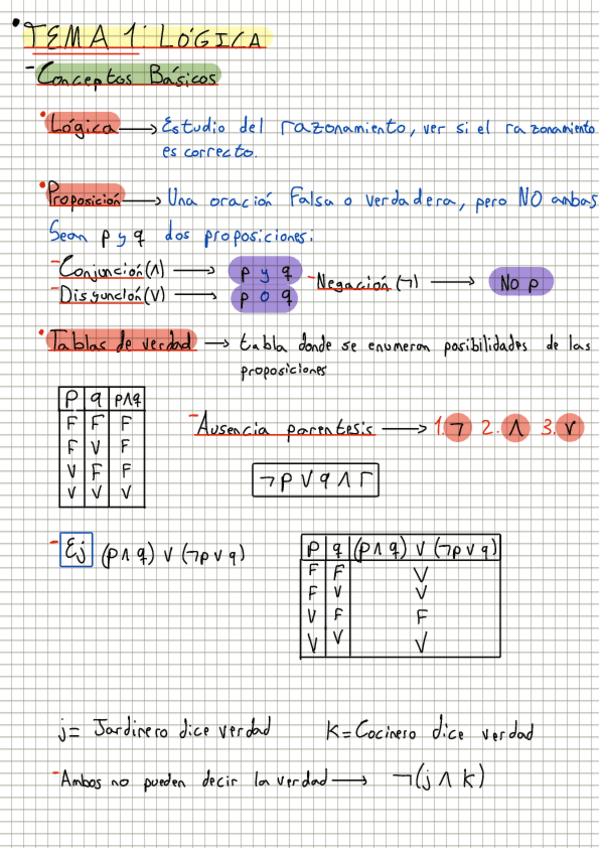 TEMA 1: LÓGICA
- Conceptos Básicos
Lógica → Estudio del razonamiento, ver si el razonamiento
es correcto.
Proposición → Una oración Falsa o verdadera, pero NO ambas
Sean p y q dos proposiciones:
- Conjunción (∧) → p y q - Negación (¬) → No p
- Disyunción (∨) → p o q
Tablas de verdad → tabla donde se enumeran posibilidades de las
proposiciones
p q p∧q
F F F
F V F
V F F
V V V
- Ausencia parentesis → 1. ¬ 2. ∧ 3. ∨
¬p ∨ q ∧ r
- Ej (p ∧ q) ∨ (¬p ∨ q)
p q (p ∧ q) ∨ (¬p ∨ q)
F F V
F V V
V F F
V V V
j = Jardinero dice verdad K = Cocinero dice verdad
- Ambos no pueden decir la verdad → ¬(j ∧ k)